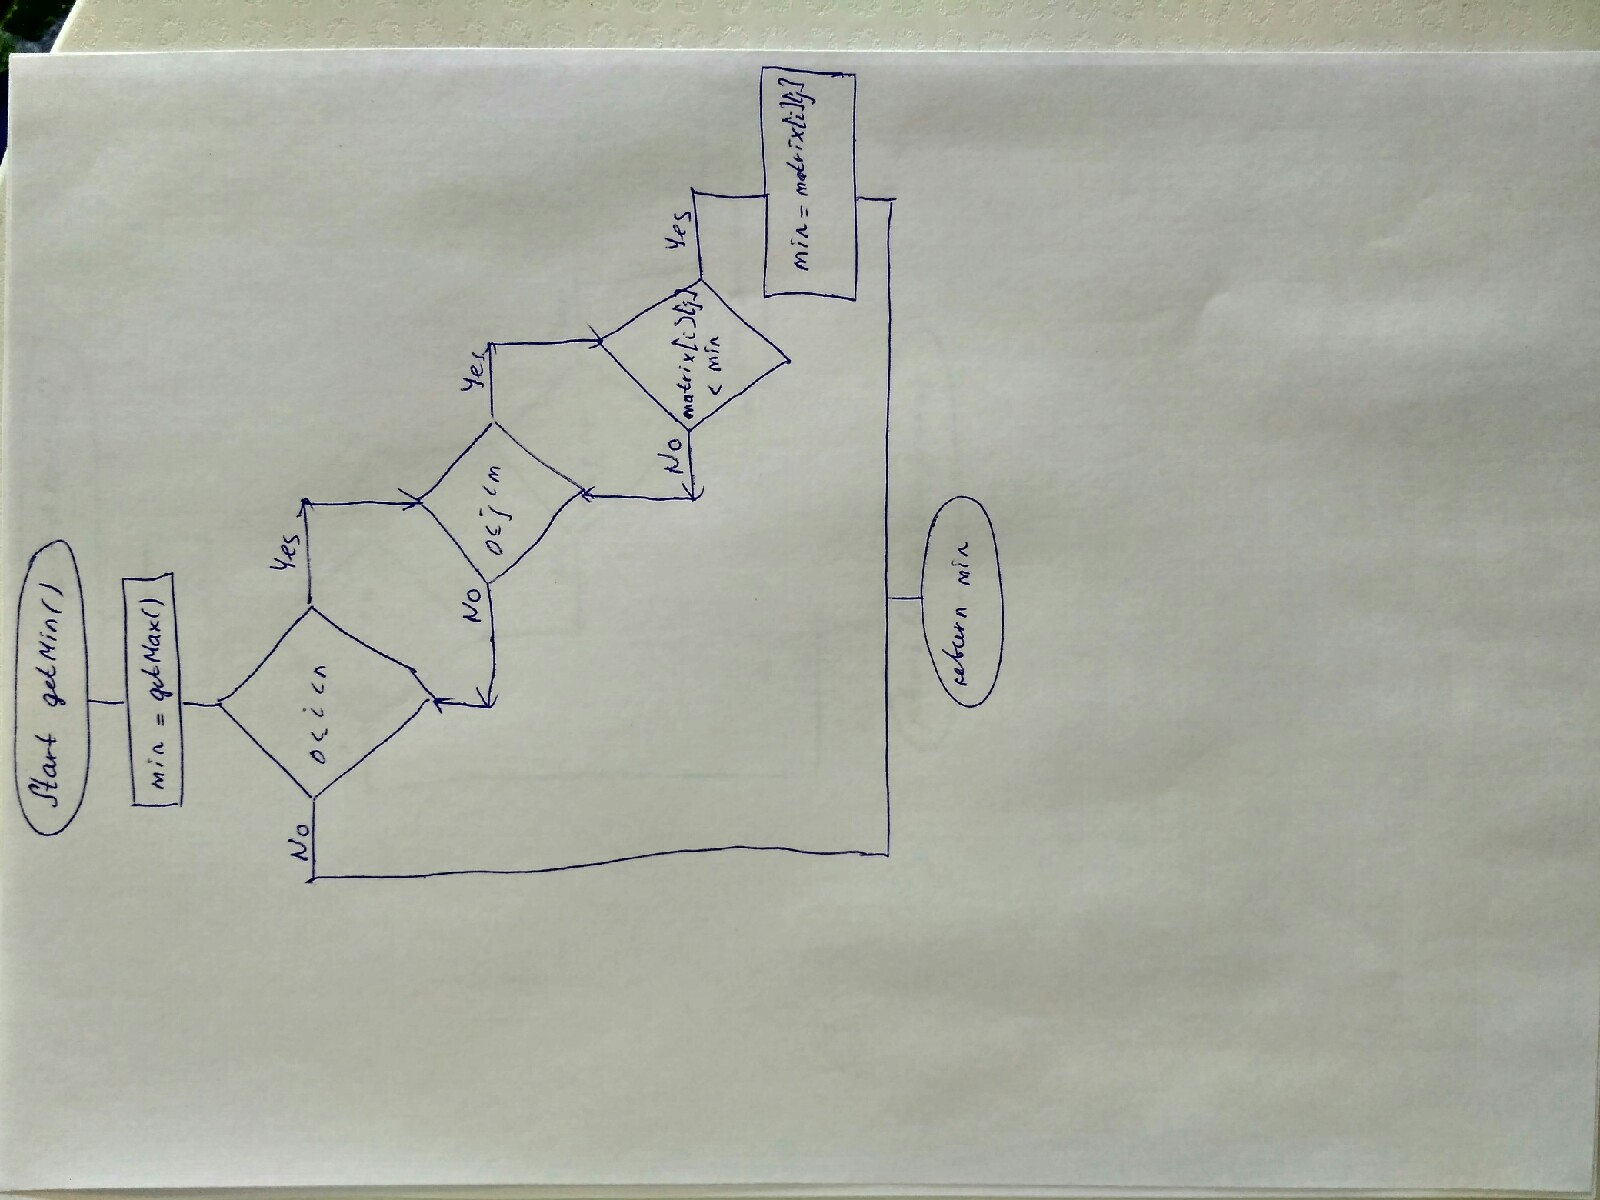 Start getMin()
min = getMax()
0 ≤ i < n
No
Yes
0 ≤ j < m
No
Yes
matrix[i][j]
< min
No
Yes
min = matrix[i][j]
return min